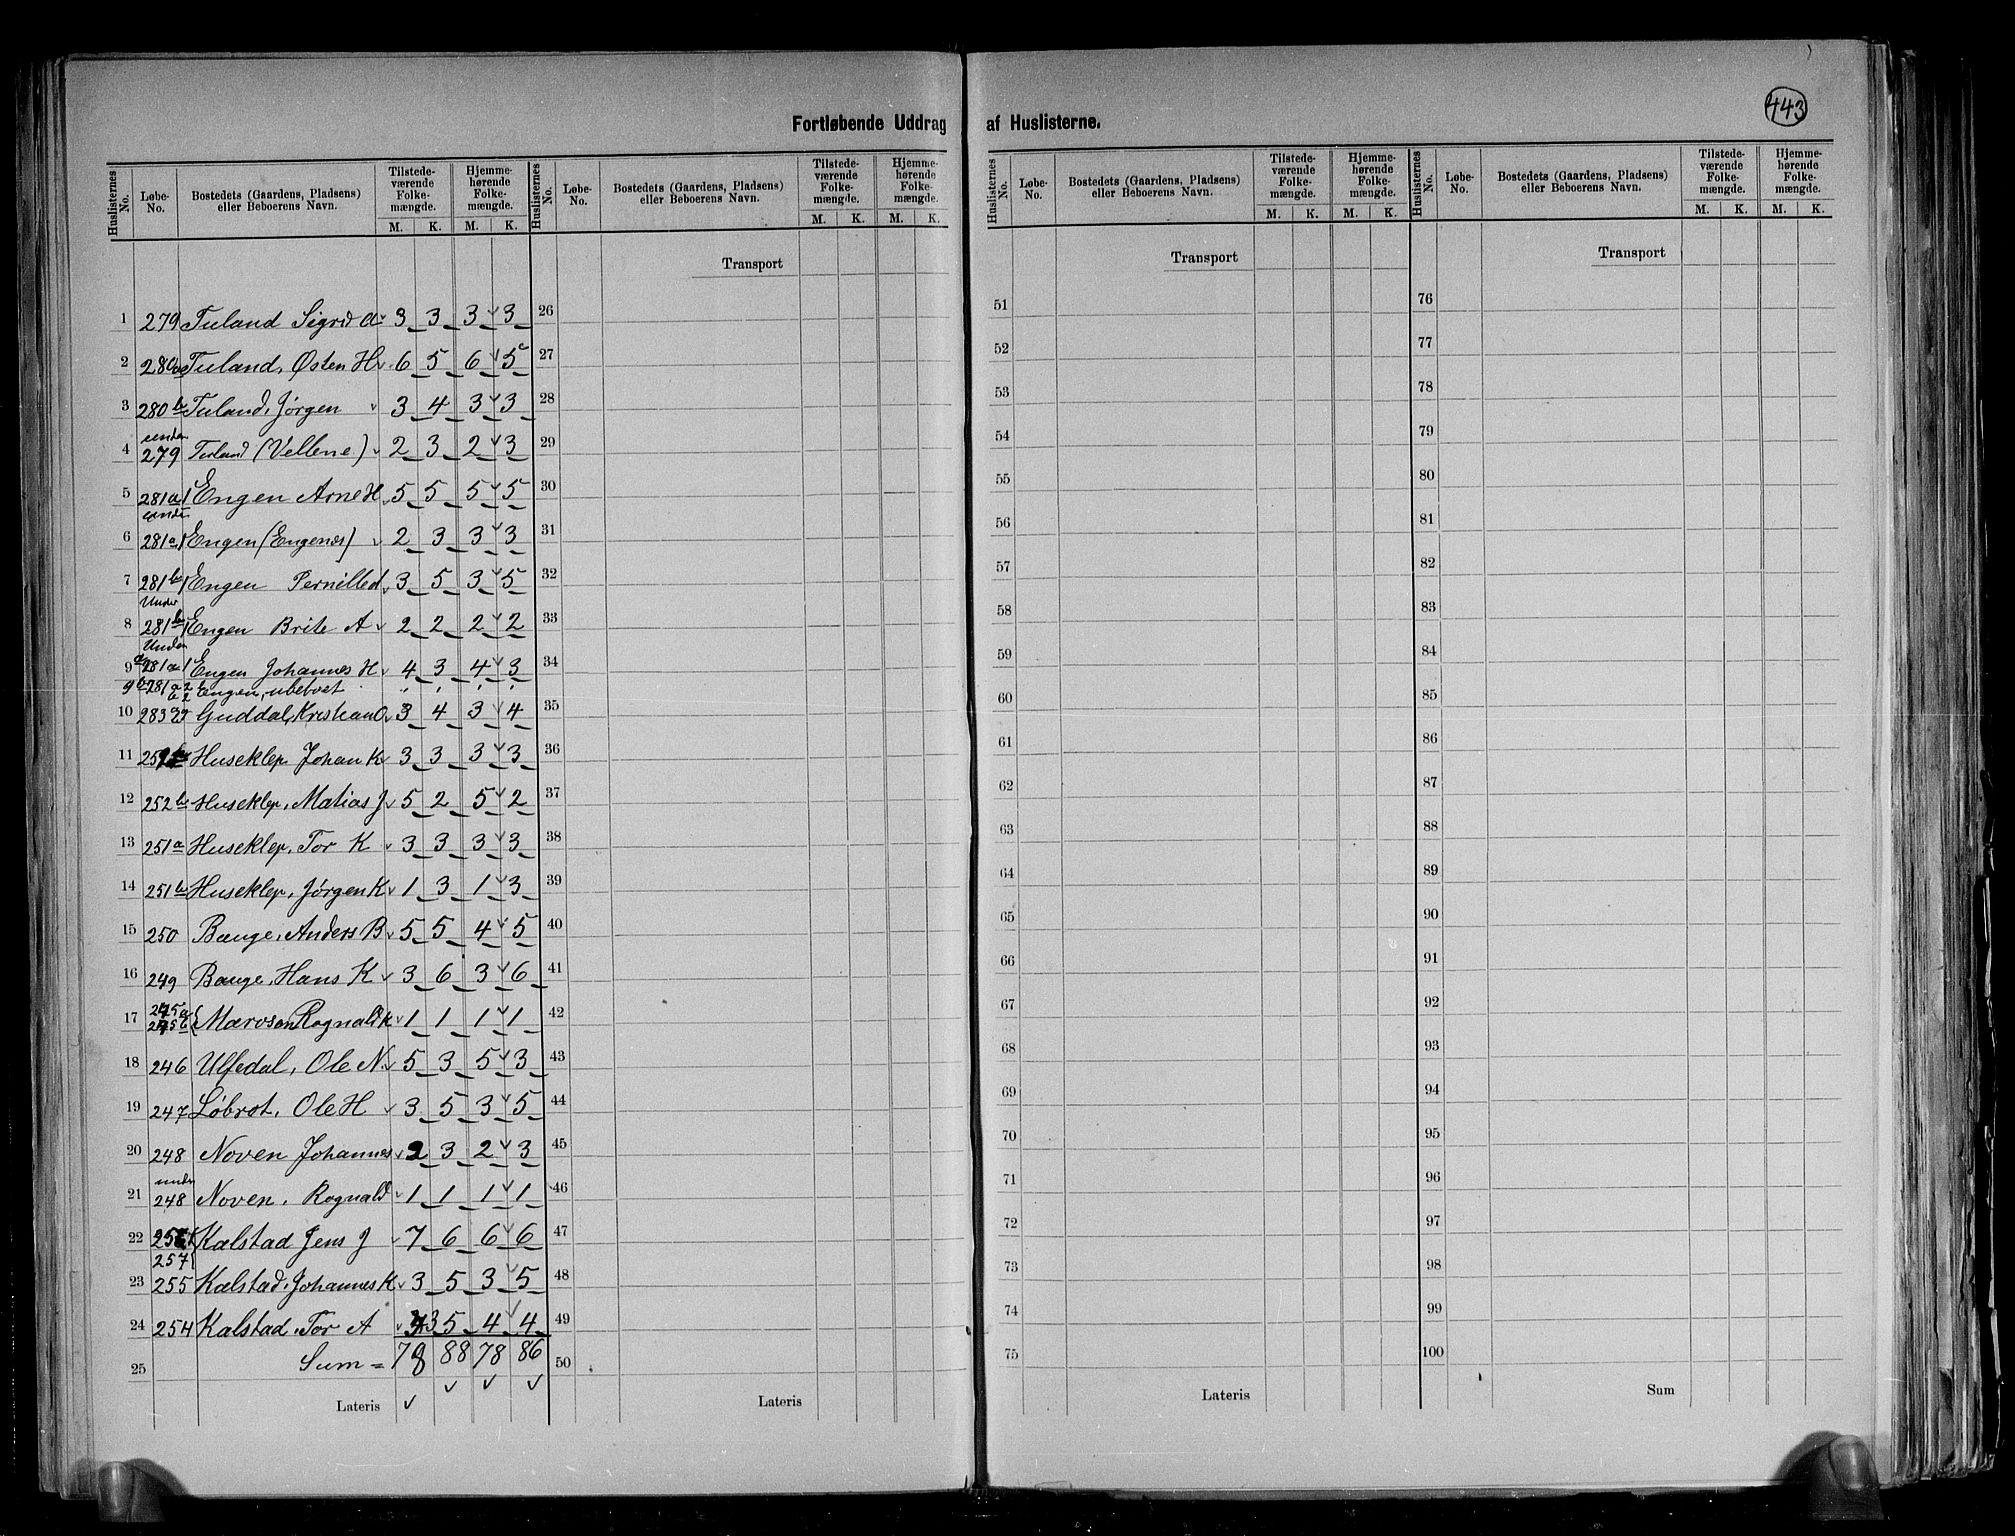 443
Fortløbende Uddrag af Huslisterne.
Huslisternes No. Løbe-No. Bostedets (Gaardens, Pladsens) eller Beboerens Navn. Tilstedeværende Folkemængde. M. K. Hjemmehørende Folkemængde. M. K.
Huslisternes No. Løbe-No. Bostedets (Gaardens, Pladsens) eller Beboerens Navn. Tilstedeværende Folkemængde. M. K. Hjemmehørende Folkemængde. M. K.
Huslisternes No. Løbe-No. Bostedets (Gaardens, Pladsens) eller Beboerens Navn. Tilstedeværende Folkemængde. M. K. Hjemmehørende Folkemængde. M. K.
Huslisternes No. Løbe-No. Bostedets (Gaardens, Pladsens) eller Beboerens Navn. Tilstedeværende Folkemængde. M. K. Hjemmehørende Folkemængde. M. K.
Transport Transport Transport
1 279 Tuland Sigrid A 3 3 3 3 26 51 76
2 280a Tuland, Østen H 6 5 6 5 27 52 77
3 280b Tuland, Jørgen 3 4 3 3 28 53 78
4 under 279 Tuland (Vellene) 2 3 2 3 29 54 79
5 281a1 Engen Arne H 5 5 5 5 30 55 80
6 under 281a1 Engen (Engenes) 2 3 3 3 31 56 81
7 281b1 Engen Pernille d 3 5 3 5 32 57 82
8 Under 281b1 Engen Brite A 2 2 2 2 33 58 83
9a Under 281a1 Engen Johannes H 4 3 4 3 34 59 84
9b 281 a2 b2 Engen, ubeboet
10 283 Guddal, Kristian O 3 4 3 4 35 60 85
11 Huseklep Johan K 3 3 3 3 36 61 86
12 252b Huseklep, Matias J 5 2 5 2 37 62 87
13 251a Huseklep, Tor K 3 3 3 3 38 63 88
14 251b Huseklep, Jørgen K 1 3 1 3 39 64 89
15 250 Bauge, Anders B 5 5 4 5 40 65 90
16 249 Bauge, Hans K 3 6 3 6 41 66 91
17 245a 245b Mæroson Rognald K 1 1 1 1 42 67 92
18 246 Ulfedal, Ole N. 5 3 5 3 43 68 93
19 247 Løbrot, Ole H 3 5 3 5 44 69 94
20 248 Noven Johannes 2 3 2 3 45 70 95
21 under 248 Noven, Rognald 1 1 1 1 46 71 96
22 257 Kalstad Jens J 7 6 6 6 47 72 97
23 255 Kalstad, Johannes K 3 5 3 5 48 73 98
24 254 Kalstad, Tor A 3 5 4 4 49 74 99
25 Sum = 78 88 78 86 50 75 100
Lateris Lateris Lateris Sum